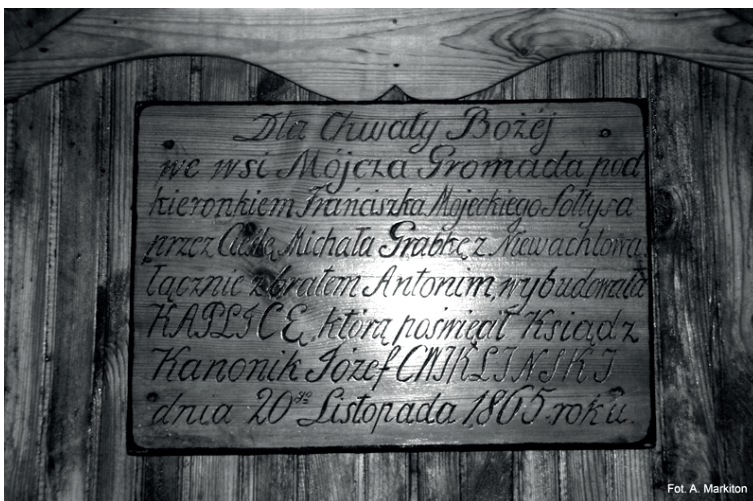 Dla Chwały Bożéj
we wsi Mójcza Gromada pod
kieronkiem Frańciszka Mojeckiego Sołtysa
przez Cieślę Michała Grabkę z Niewachlowa
łącznie z bratem Antonim, wybudowała
KAPLICĘ, którą poświęcił Ksiądz
Kanonik Józef CWIKLINSKI
dnia 20go Listopada 1865 roku.
Fot. A. Markiton